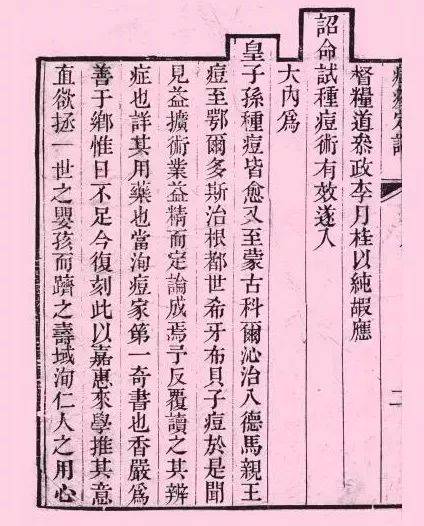 痘疹定論
二
督糧道叅政李月桂以純嘏應
詔命試種痘術有效遂入
大內爲
皇子孫種痘皆愈又至蒙古科爾沁治八德馬親王
痘至鄂爾多斯治根都世希牙布貝子痘於是聞
見益擴術業益精而定論成焉予反覆讀之其辨
症也詳其用藥也當洵痘家第一奇書也香嚴爲
善于鄉惟日不足今復刻此以嘉惠來學推其意
直欲拯一世之嬰孩而躋之壽域洵仁人之用心